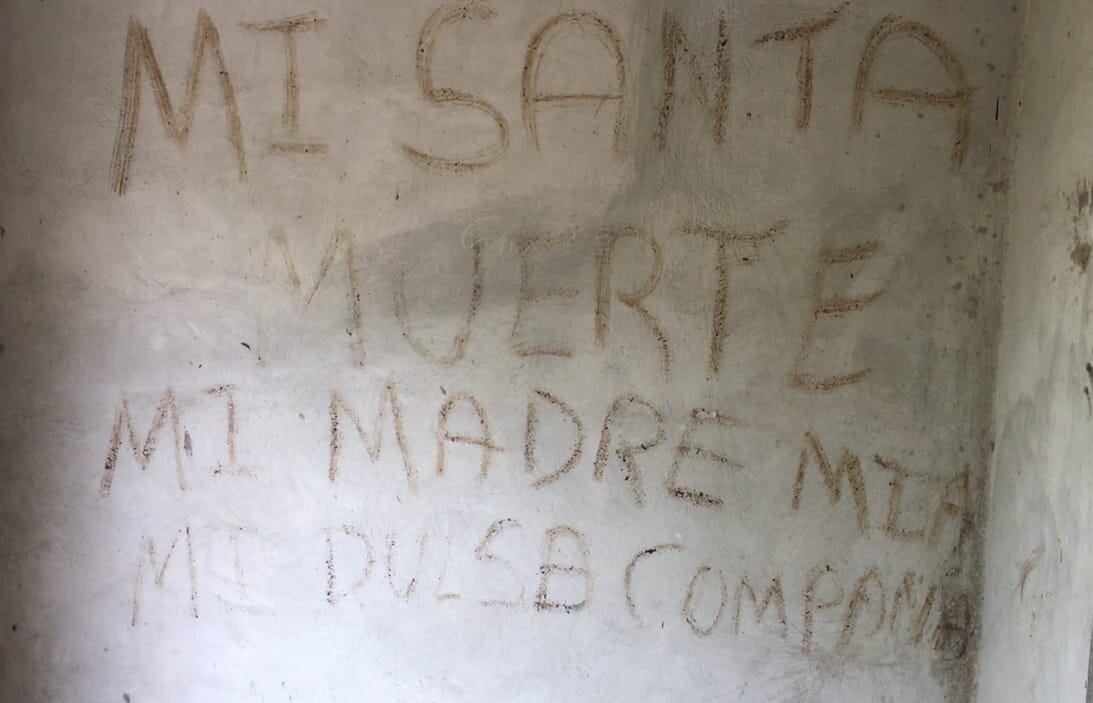 MI SANTA
MUERTE
MI MADRE MIA
MI DULSB COMPANIA